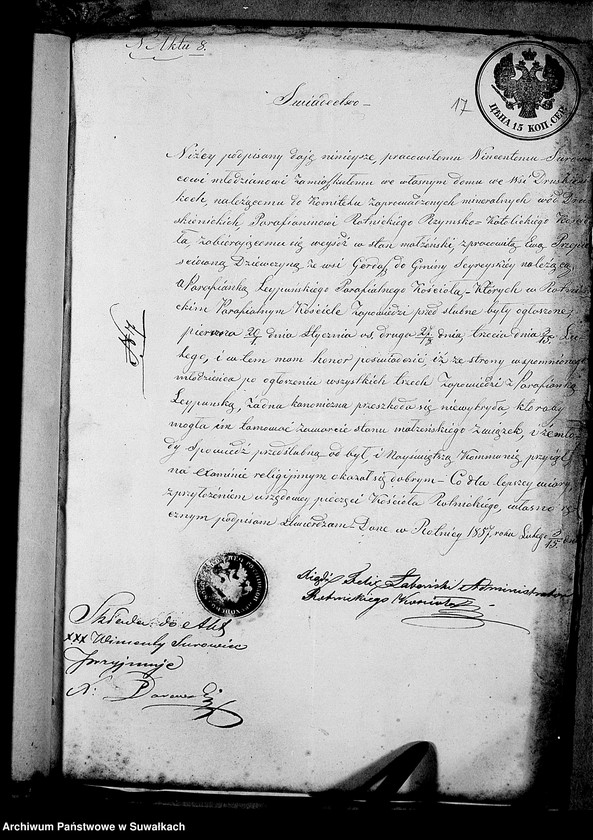 N Aktu 8.
ЦѢНА 15 КОП. СЕР.
Swiadectwo
17
Niżey podpisany daję ninieysze, pracowitemu Wincentemu Surow
cowi młodzianowi zamieszkałemu we własnym domu we Wsi Druskieni
kach, należącemu do Komitetu zaprowadzonych mineralnych wód Drus
kienickich Parafianinowi Rotnickiego Rzymsko-Katolickiego Kościo
ła, zabierającemu się wejść w stan małżeński, z pracowitą Ewą
Dziewczyną ze wsi do Gminy Seyreyskiy należącą,
a Parafianką Leypuńskiego Parafialnego Kościoła, - Których w Rotnic
kim Parafialnym Kościele zapowiedzi przed slubne były ogłoszone
pierwsza dnia Stycznia v.s. druga dnia, trzecia dnia Lu
tego, i oczem mam honor poswiadczić, iż ze strony wspomnionego
młodzieńca po ogłoszeniu wszystkich trzech zapowiedzi z Parafianką
Leypuńską, żadna kanoniczna przeszkoda się niewykryła któraby
mogła im tamować zawarcie stanu małżeńskiego związek, i że mło
dy Spowiedź przedslubną odbył, i Nayswiętszą Kommunię przyiął
na examinie religijnym okazał się dobrym - Co dla lepszey wiary,
z przyłożeniem urzędowey pieczęci Kościoła Rotnickiego, własno rę
cznym podpisem stwierdzam - Dano w Rotnicy 1857 roku Lutego
N 7
Xiądz Felix Administrator
Rotnickiego Kościoła
Składa do Akt
XXX Wincenty Surowiec
Przyjmuje
Archiwum Państwowe w Suwałkach